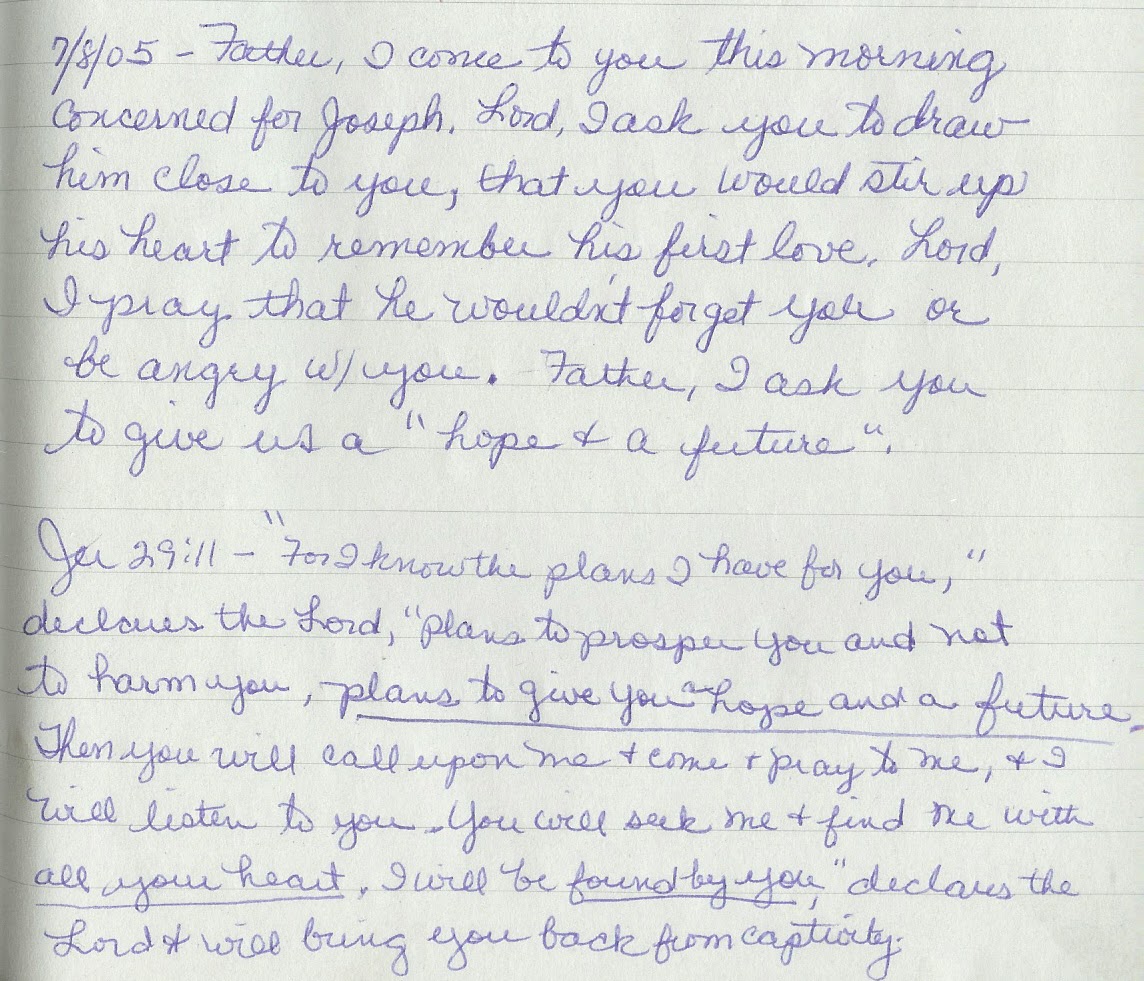 7/8/05 - Father, I come to you this morning
concerned for Joseph. Lord, I ask you to draw
him close to you, that you would stir up
his heart to remember his first love. Lord,
I pray that he wouldn't forget you or
be angry w/ you. Father, I ask you
to give us a "hope & a future".
Jer 29:11 - "For I know the plans I have for you,"
declares the Lord, "plans to prosper you and not
to harm you, plans to give you a hope and a future.
Then you will call upon me + come + pray to me, + I
will listen to you. You will seek me + find me with
all your heart. I will be found by you," declares the
Lord & will bring you back from captivity.